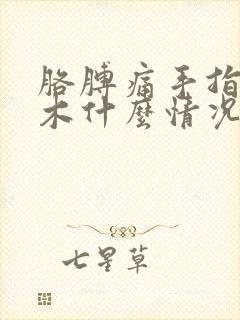 胳膊痛手指
木什麼情况
七星草